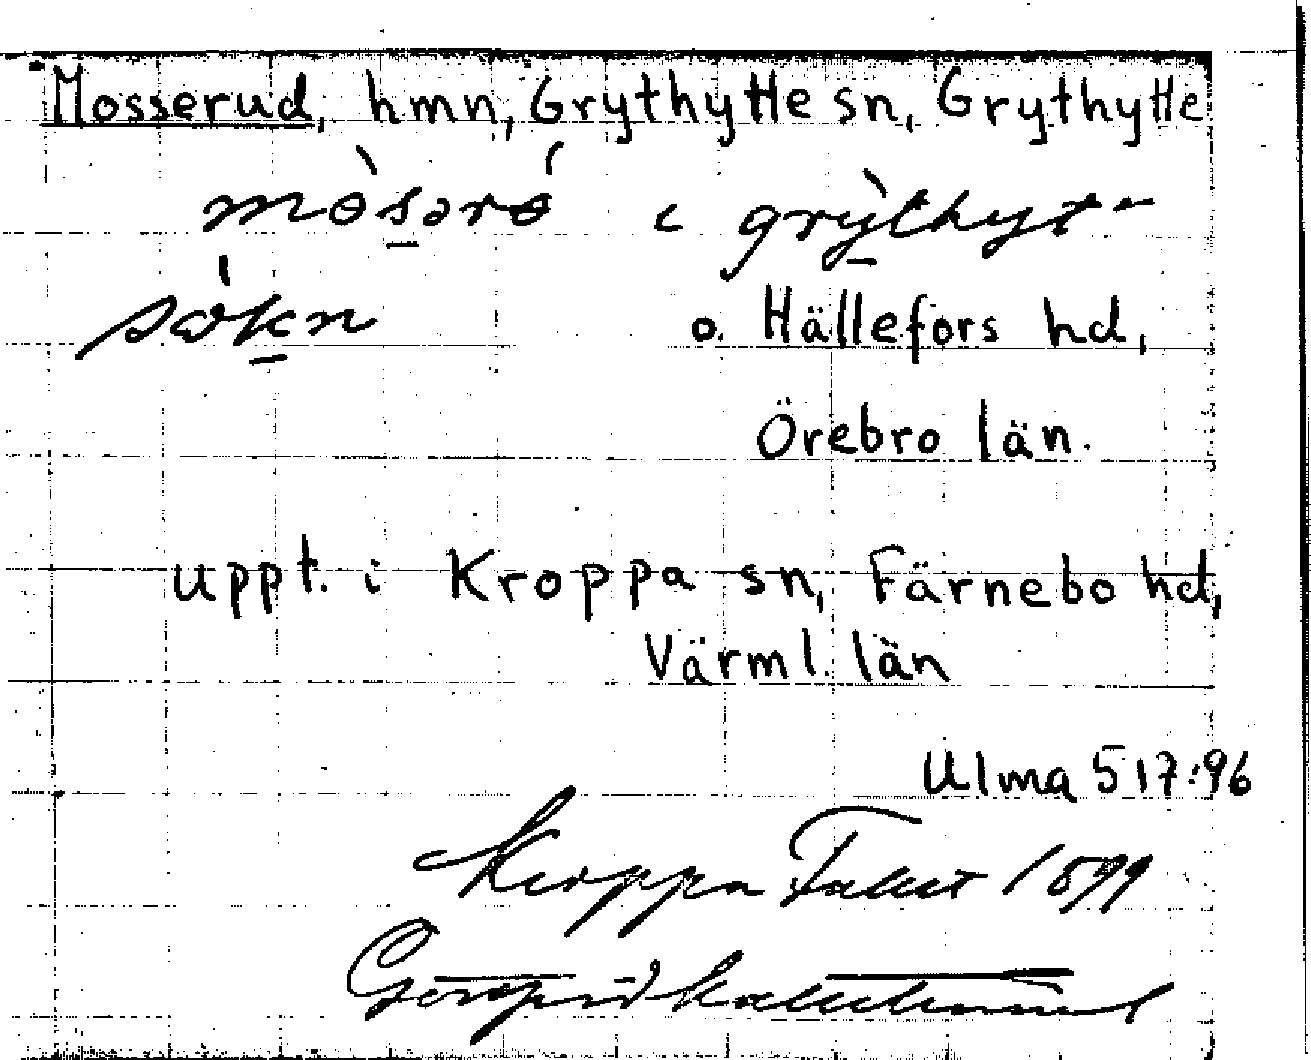 Mosserud, hmn, Grythytte sn, Grythytte
i
o. Hällefors hd,
Örebro län.
uppt. i Kroppa sn, Färnebo hd,
Värml. län
Ulma 517:96
Kroppa 1899
Gottfrid Kallstenius